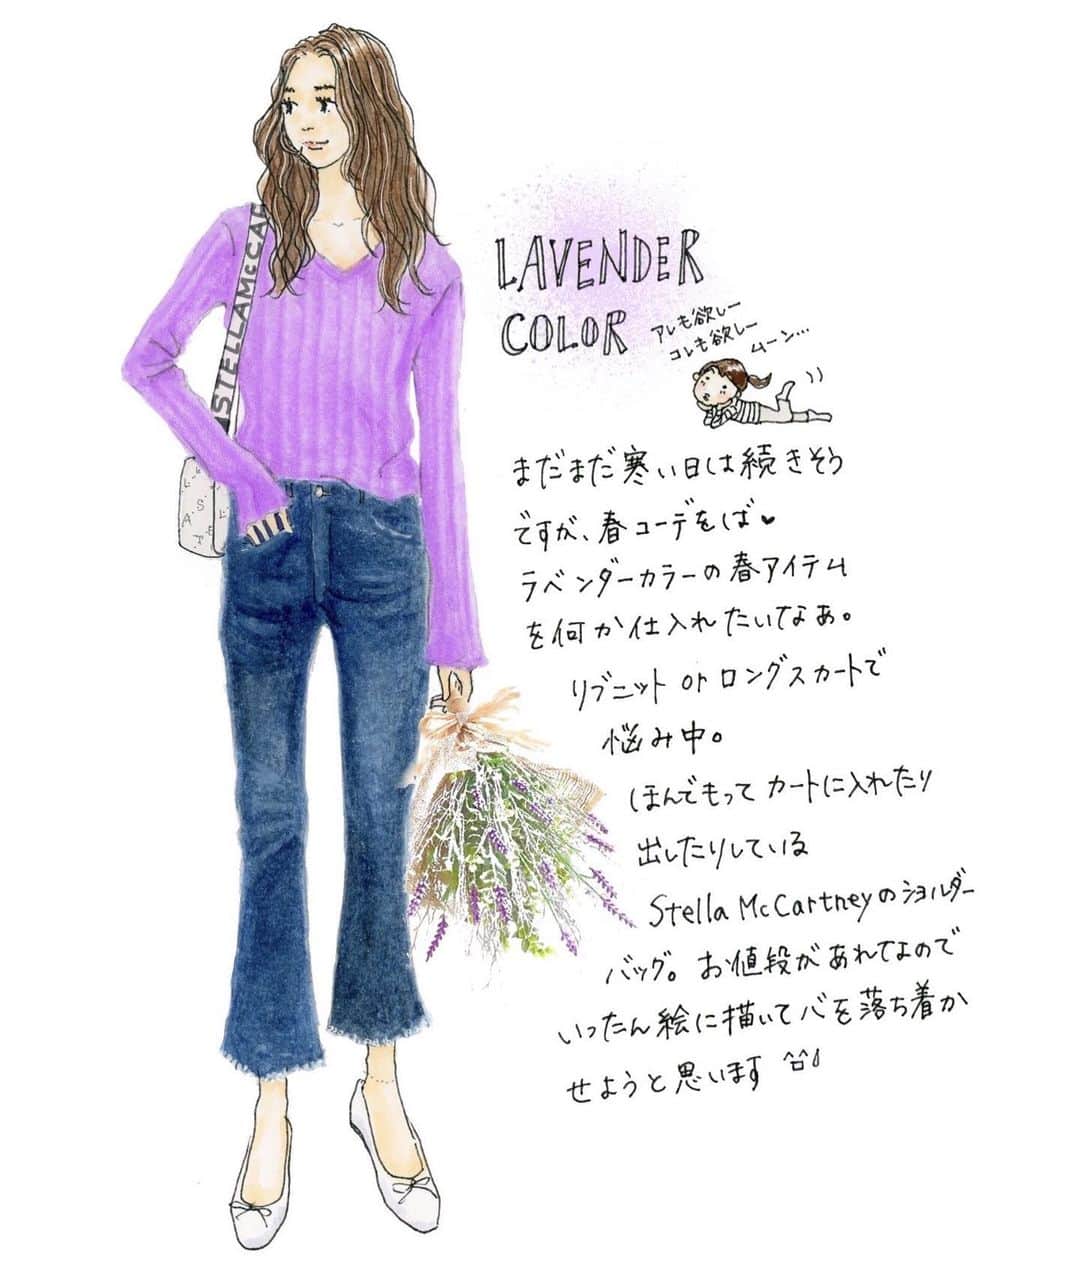 LAVENDER
COLOR
アレも欲しー
コレも欲しー
ムーン…
STELLAMcCAR
まだまだ寒い日は続きそう
ですが、春コーデをば♥
ラベンダーカラーの春アイテム
を何か仕入れたいなぁ。
リブニット or ロングスカートで
悩み中。
ほんでもって カートに入れたり
出したりしている
Stella McCartneyのショルダー
バッグ。お値段があれなので
いったん絵に描いて心を落ち着か
せようと思います